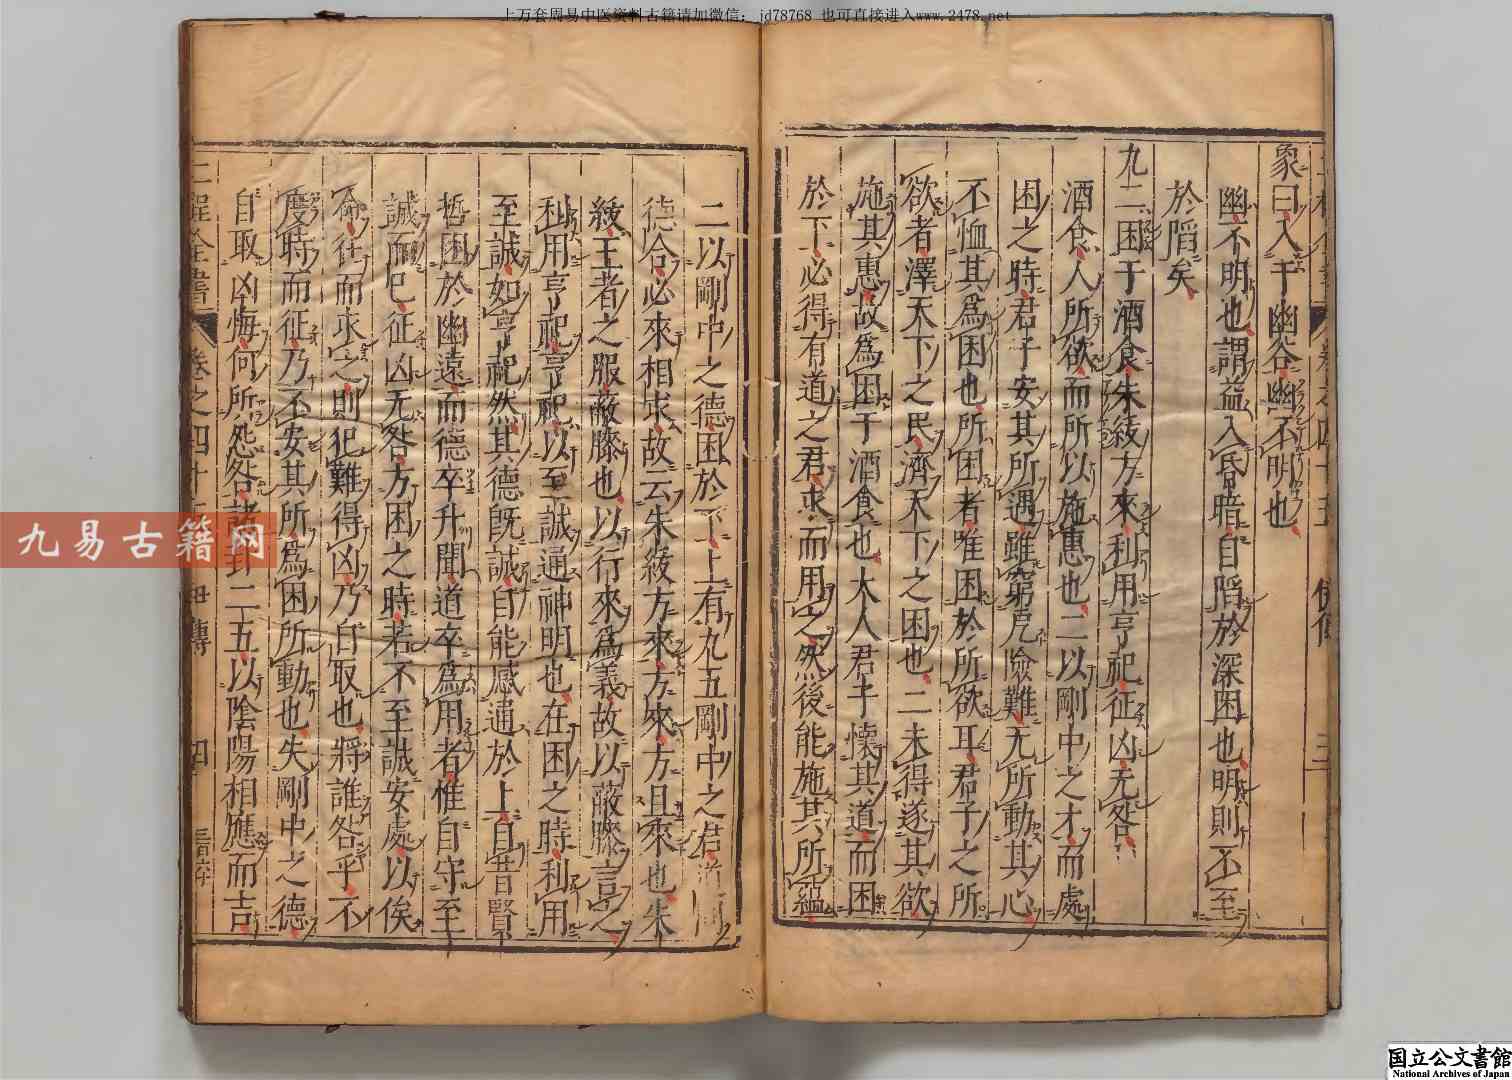 上万套周易中医资料古籍请加微信：jd78768 也可直接进入www.2478.net
象曰入于幽谷幽不明也
幽不明也謂益入昏暗自陷於深困也明則不至
於陷矣
九二困于酒食朱紱方來利用亨祀征凶无咎
酒食人所欲而所以施惠也二以剛中之才而處
困之時君子安其所遇雖窮戹險難无所動其心
不恤其爲困也所困者唯困於所欲耳君子之所
欲者澤天下之民濟天下之困也二未得遂其欲
施其惠故爲困于酒食也大人君子懷其道而困
於下必得有道之君求而用之然後能施其所蘊
二以剛中之德困於下上有九五剛中之君道同
德合必來相求故云朱紱方來方來方且來也朱
紱王者之服蔽膝也以行來爲義故以蔽膝言之
利用亨祀亨祀以至誠通神明也在困之時利用
至誠如亨祀然其德旣誠自能感通於上自昔賢
哲困於幽遠而德卒升聞道卒爲用者惟自守至
誠而已征凶无咎方困之時若不至誠安處以俟
命往而求之則犯難得凶乃自取也將誰咎乎不
度時而征乃不安其所爲困所動也失剛中之德
自取凶悔何所怨咎諸卦二五以陰陽相應而吉
二程全書 卷之四十 傳 四
九易古籍网
国立公文書館
National Archives of Japan